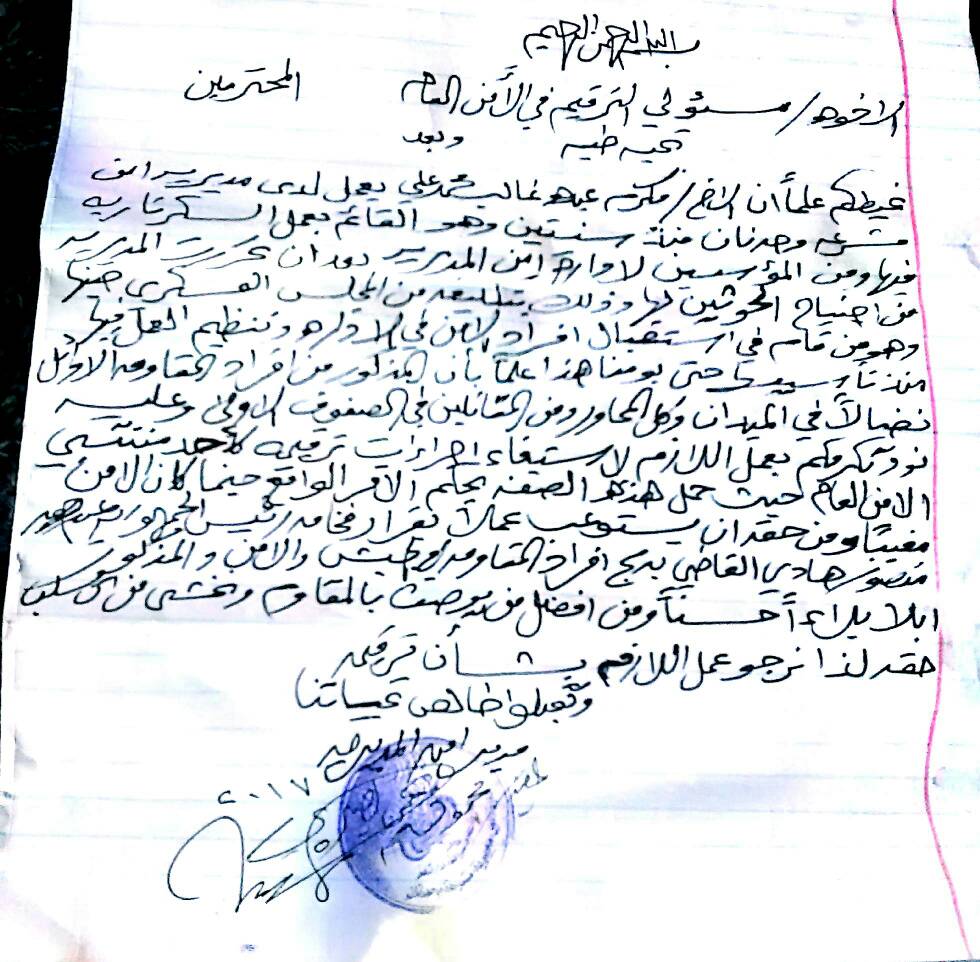 بسم الله الرحمن الرحيم
الاخوه / مسئولي الترقيم في الأمن العام المحترمين
تحيه طيبه وبعد
نحيطكم علماً أن الاخ / مكرم عبده غالب محمد علي يعمل لدى مديرية امن
مشرعه وحدنان منذ سنتين وهو القائم بعمل السكرتاريه
فيها ومن المؤسسين لادارة امن المديريه بعد ان تحررت المديريه
من اجتياح الحوثيين لها وذلك بتكليف من المجلس العسكري حينها
وهو من قام في استقبال افراد الامن في الاداره وتنظيم العمل فيها
منذ تأسيسها حتى يومنا هذا علماً بأن المذكور من افراد المقاومه الاوائل
نضالاً في الميدان وكل المحاور ومن المقاتلين في الصفوف الاولى وعليه
نود تكرمكم بعمل اللازم لاستيفاء اجراءات ترقيمه كأحد منتسبي
الامن العام حيث حمل هذه الصفه بحكم الأمر الواقع حينما كان الامن
مغيباً ومن حقه ان يستوعب عملاً بقرار فخامه رئيس الجمهوريه عبدربه
منصور هادي القاضي بدمج افراد المقاومه بالجيش والامن والمذكور
ابلا بلاءاً حسناً ومن افضل من يوصف بالمقاوم ونخشى من ان يسلب
حقه لذا نرجو عمل اللازم بشأن ترقيمه
وتقبلوا خالص تحياتنا
مدير امن المديريه
٢٠١٧